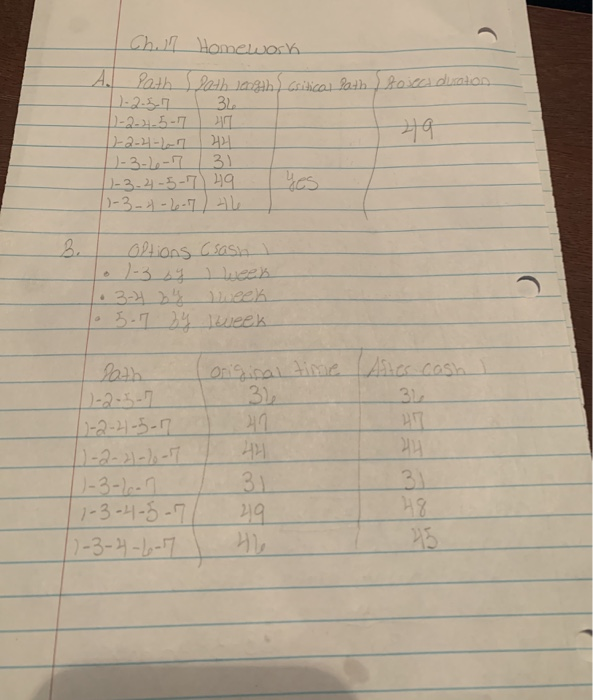 Ch. 17 Homework
A. Path Path length Critical Path Project duration
1-2-5-7 36
1-2-4-5-7 47 49
1-2-4-6-7 44
1-3-6-7 31
1-3-4-5-7 49 Yes
1-3-4-6-7 46
B. Options Crash 1
• 1-3 by 1 week
• 3-4 by 1 week
• 5-7 by 1 week
Path original time After cash 1
1-2-5-7 36 36
1-2-4-5-7 47 47
1-2-4-6-7 44 44
1-3-6-7 31 31
1-3-4-5-7 49 48
1-3-4-6-7 46 45